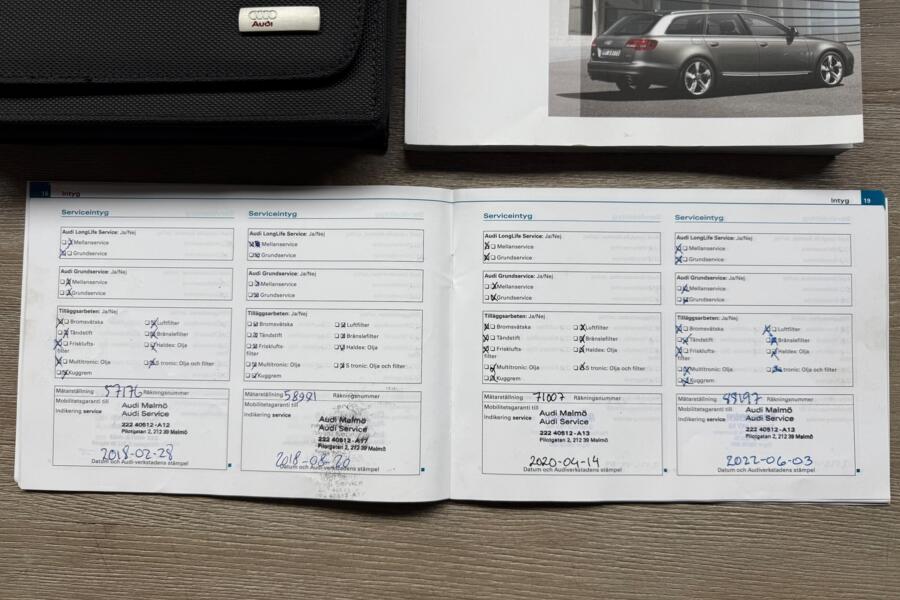 Audi
18
Intyg
Serviceintyg
Audi LongLife Service: Ja/Nej
Mellanservice
Grundservice
Audi Grundservice: Ja/Nej
Mellanservice
Grundservice
Tilläggsarbeten: Ja/Nej
Bromsvätska
Luftfilter
Tändstift
Bränslefilter
Friskluftsfilter
Haldex: Olja
Multitronic: Olja
S tronic: Olja och filter
Kuggrem
Mätarställning 57176 Räkningsnummer
Mobilitetsgaranti till
Indikering service
Audi Malmö
Audi Service
222 40612 -A12
Pilotgatan 2, 212 39 Malmö
2018-02-28
Datum och Audiverkstadens stämpel
Serviceintyg
Audi LongLife Service: Ja/Nej
Mellanservice
Grundservice
Audi Grundservice: Ja/Nej
Mellanservice
Grundservice
Tilläggsarbeten: Ja/Nej
Bromsvätska
Luftfilter
Tändstift
Bränslefilter
Friskluftsfilter
Haldex: Olja
Multitronic: Olja
S tronic: Olja och filter
Kuggrem
Mätarställning 58981 Räkningsnummer
Mobilitetsgaranti till
Indikering service
Audi Malmö
Audi Service
222 40612 -A17
Pilotgatan 2, 212 39 Malmö
2018-08-20
Datum och Audiverkstadens stämpel
Intyg
19
Serviceintyg
Audi LongLife Service: Ja/Nej
Mellanservice
Grundservice
Audi Grundservice: Ja/Nej
Mellanservice
Grundservice
Tilläggsarbeten: Ja/Nej
Bromsvätska
Luftfilter
Tändstift
Bränslefilter
Friskluftsfilter
Haldex: Olja
Multitronic: Olja
S tronic: Olja och filter
Kuggrem
Mätarställning 71007 Räkningsnummer
Mobilitetsgaranti till
Indikering service
Audi Malmö
Audi Service
222 40612 -A13
Pilotgatan 2, 212 39 Malmö
2020-04-14
Datum och Audiverkstadens stämpel
Serviceintyg
Audi LongLife Service: Ja/Nej
Mellanservice
Grundservice
Audi Grundservice: Ja/Nej
Mellanservice
Grundservice
Tilläggsarbeten: Ja/Nej
Bromsvätska
Luftfilter
Tändstift
Bränslefilter
Friskluftsfilter
Haldex: Olja
Multitronic: Olja
S tronic: Olja och filter
Kuggrem
Mätarställning 88197 Räkningsnummer
Mobilitetsgaranti till
Indikering service
Audi Malmö
Audi Service
222 40612 -A13
Pilotgatan 2, 212 39 Malmö
2022-06-03
Datum och Audiverkstadens stämpel